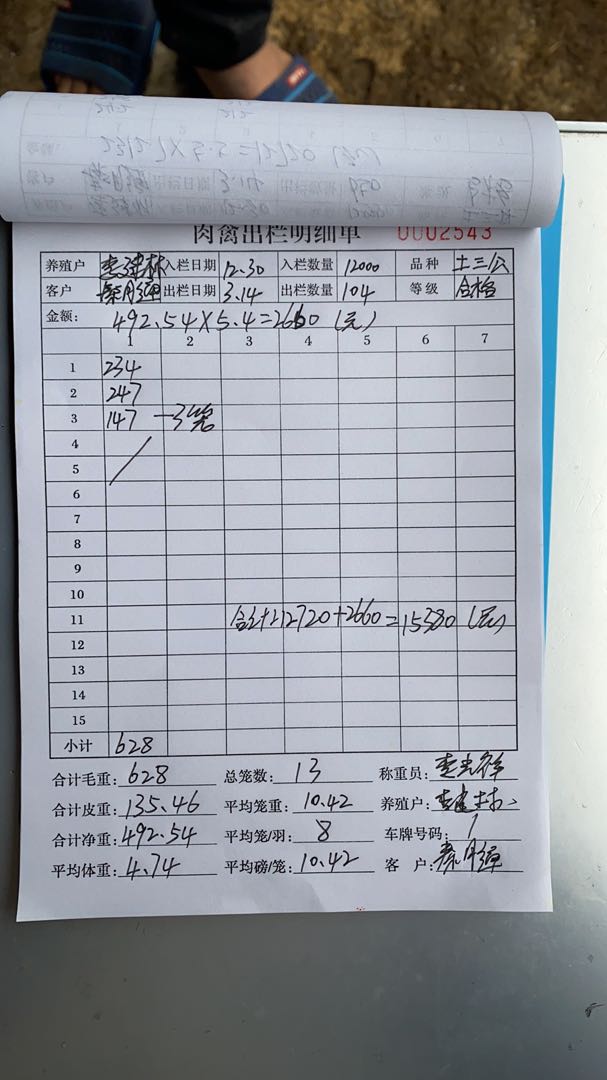 肉禽出栏明细单 0002543
养殖户 李建林 入栏日期 12.30 入栏数量 12000 品种 土三公
客户 秦月强 出栏日期 3.14 出栏数量 104 等级 合格
金额: 492.54×5.4=2660 (元)
1 2 3 4 5 6 7
1 234
2 247
3 147 一3笼
4
5
6
7
8
9
10
11 合计12720+2660=15380 (元)
12
13
14
15
小计 628
合计毛重: 628 总笼数: 13 称重员:
合计皮重: 135.46 平均笼重: 10.42 养殖户: 李建林
合计净重: 492.54 平均笼/羽: 8 车牌号码: /
平均体重: 4.74 平均磅/笼: 10.42 客 户: 秦月强